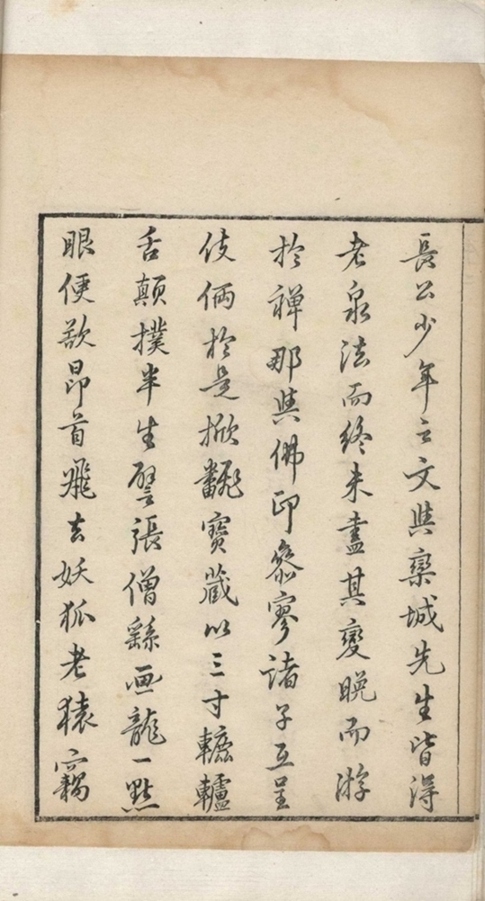 長公少年之文與欒城先生皆得
老泉法而終未盡其變晚而游
於禪那與佛印叅寥諸子互呈
伎倆於是掀翻寶藏以三寸轆轤
舌顛撲半生譬張僧繇画龍一點
眼便欲昂首飛去妖狐老猿竊